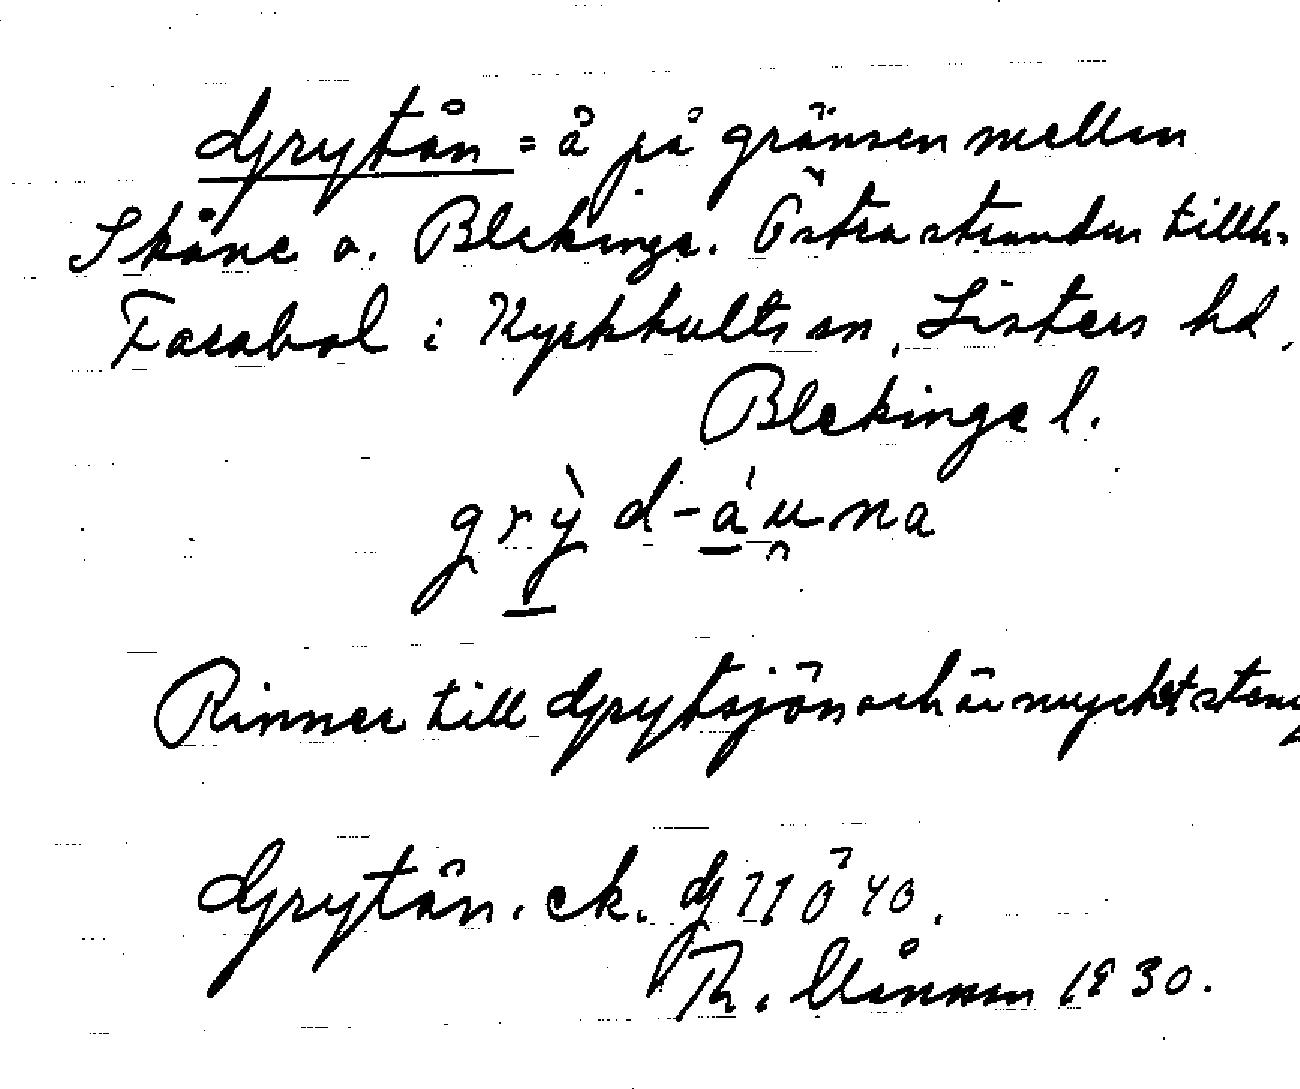 Grytån = å på gränsen mellan
Skåne o. Blekinge. Östra stranden tillh.
Farabol i Kyrkhults sn, Listers hd,
Blekinge l.
grỳd-áu̯na
Rinner till Grytsjön och är mycket
Grytån. ek. G 11 ö 40.
Th. 1930.